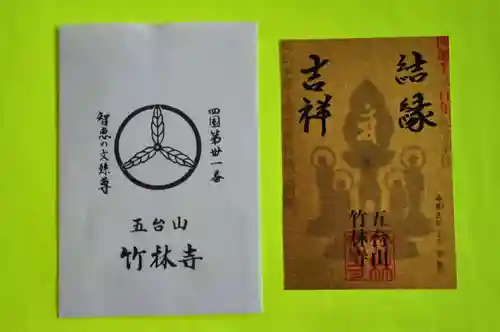 四国第卅一番
智恵の文殊尊
五台山
竹林寺
結縁
吉祥
五台山
竹林寺